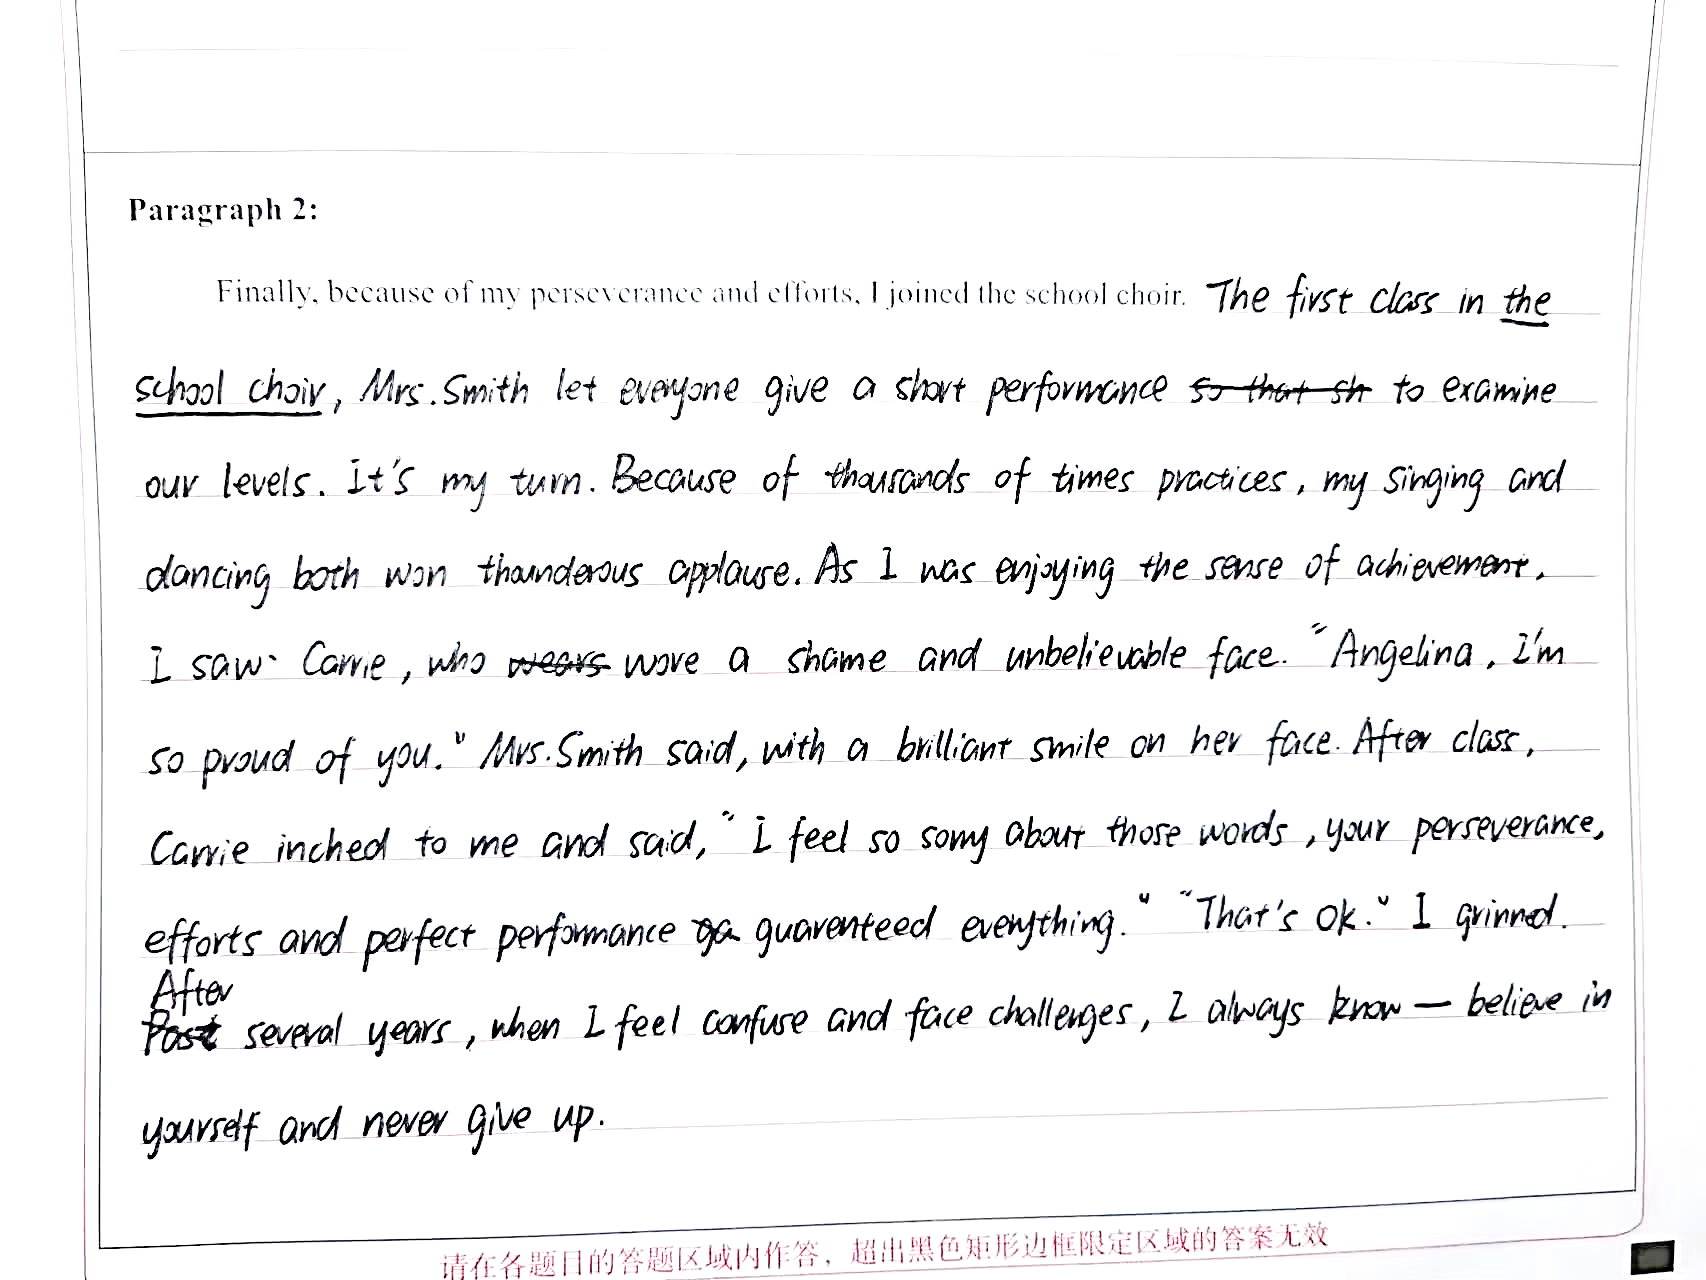 Paragraph 2:
Finally, because of my perseverance and efforts, I joined the school choir. The first class in the
school choir, Mrs. Smith let everyone give a short performance so that sh to examine
our levels. It's my turn. Because of thousands of times practices, my singing and
dancing both won thounderous applause. As I was enjoying the sense of achievement,
I saw Carrie, who wears wore a shame and unbelievable face. "Angelina, I'm
so proud of you." Mrs. Smith said, with a brilliant smile on her face. After class,
Carrie inched to me and said, "I feel so sorry about those words, your perseverance,
efforts and perfect performance ga guarenteed everything." "That's ok." I grinned.
After
Past several years, when I feel confuse and face challenges, I always know — believe in
yourself and never give up.
请在各题目的答题区域内作答，超出黑色矩形边框限定区域的答案无效